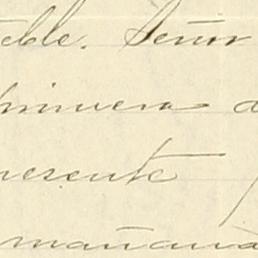 eble. Señor
primera d
resente
mañana